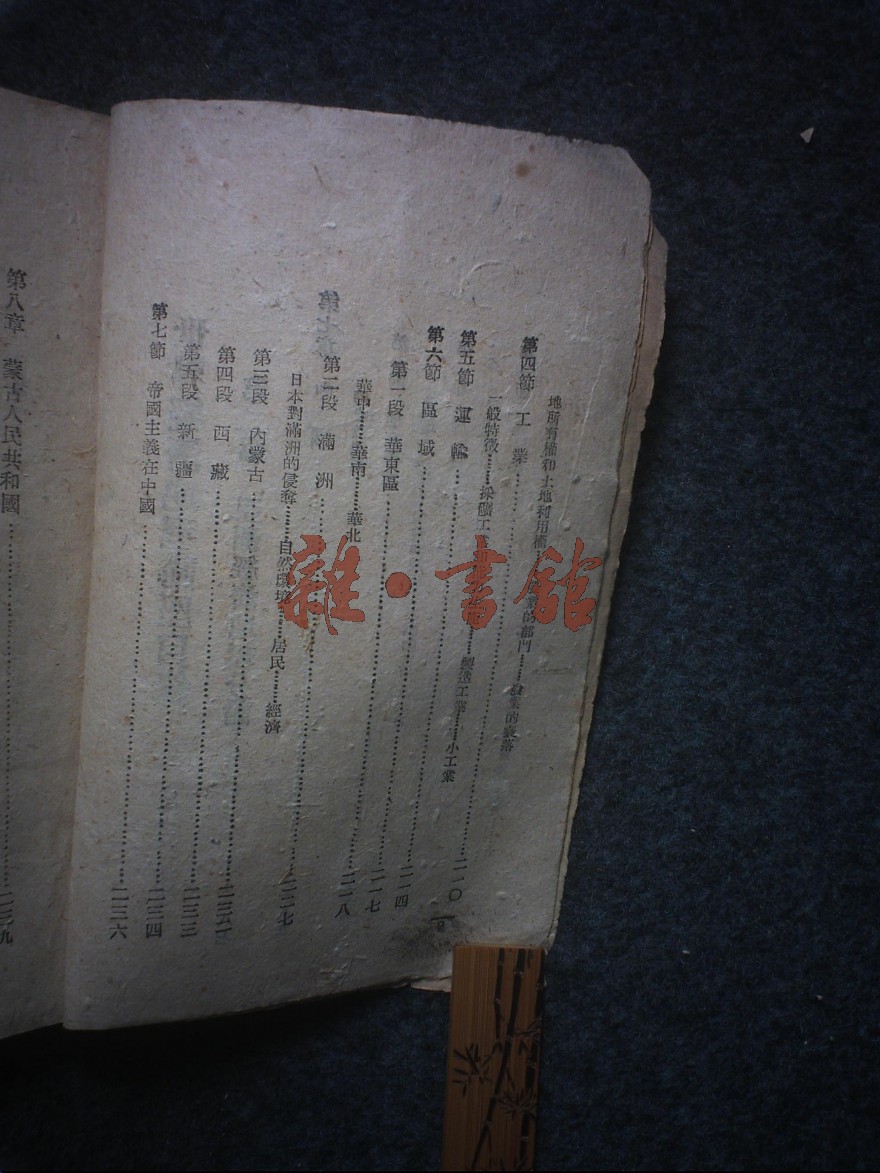 地所有權和土地利用權……業的部門……農業的衰落
第四節　工業……二一〇
一般特徵……採礦工……製造工業……小工業
第五節　運輸……二一四
第六節　區域……二一七
第一段　華東區……二一八
華中……華南……華北
第二段　滿洲……二二七
日本對滿洲的侵奪……自然環境……居民……經濟
第三段　內蒙古……二三二
第四段　西藏……二三三
第五段　新疆……二三四
第七節　帝國主義在中國……二三六
第八章　蒙古人民共和國……二三九
雜·書館